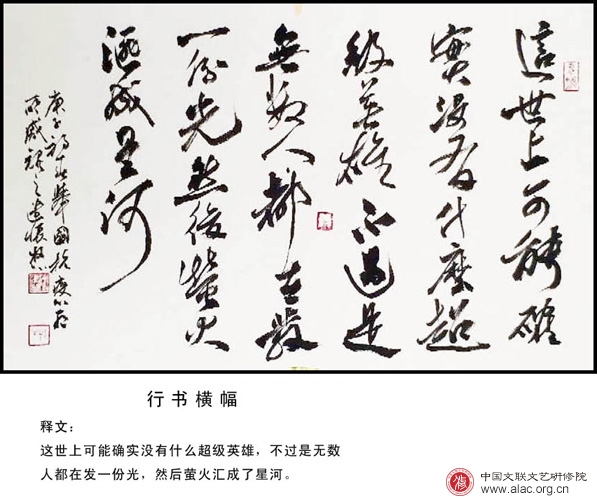 這世上可能確
實沒有什麼超
級英雄不過是
無數人都在發
一份光然後螢火
匯成星河
庚子初春舉國抗疫心有
所感
行书横幅
释文：
这世上可能确实没有什么超级英雄，不过是无数
人都在发一份光，然后萤火汇成了星河。
中国文联文艺研修院
www.alac.org.cn